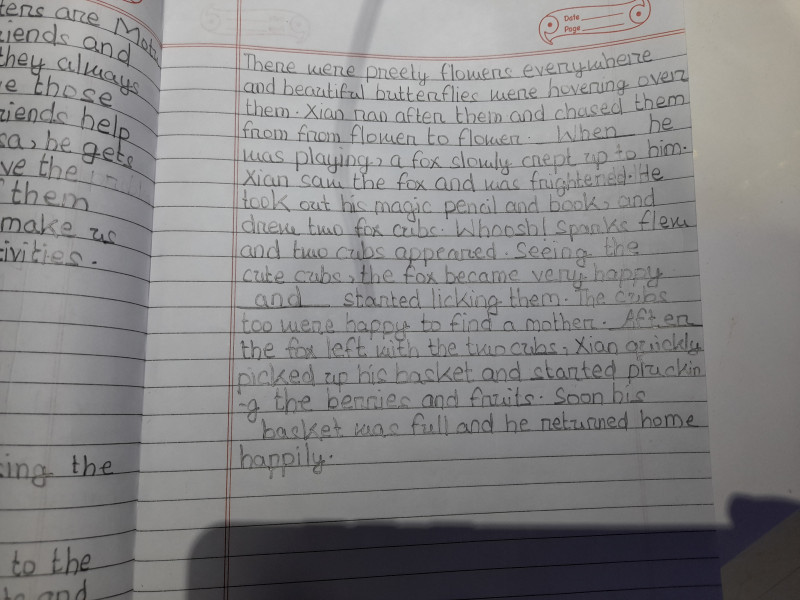 tens are Moth
riends and
they always
e those
riends help
sa, he gets
ve the
them
make us
ivities.
ing the
to the
and
Date
Page
There were preety flowers everywhere
and beautiful butterflies were hovering over
them. Xian ran after them and chased them
from from flower to flower. When he
was playing, a fox slowly crept up to him.
Xian saw the fox and was frightened. He
took out his magic pencil and book, and
drew two fox cubs. Whoosh! Sparks flew
and two cubs appeared. Seeing the
cute cubs, the fox became very happy
and started licking them. The cubs
too were happy to find a mother. After
the fox left with the two cubs, Xian quickly
picked up his basket and started pluckin
-g the berries and fruits. Soon his
basket was full and he returned home
happily.